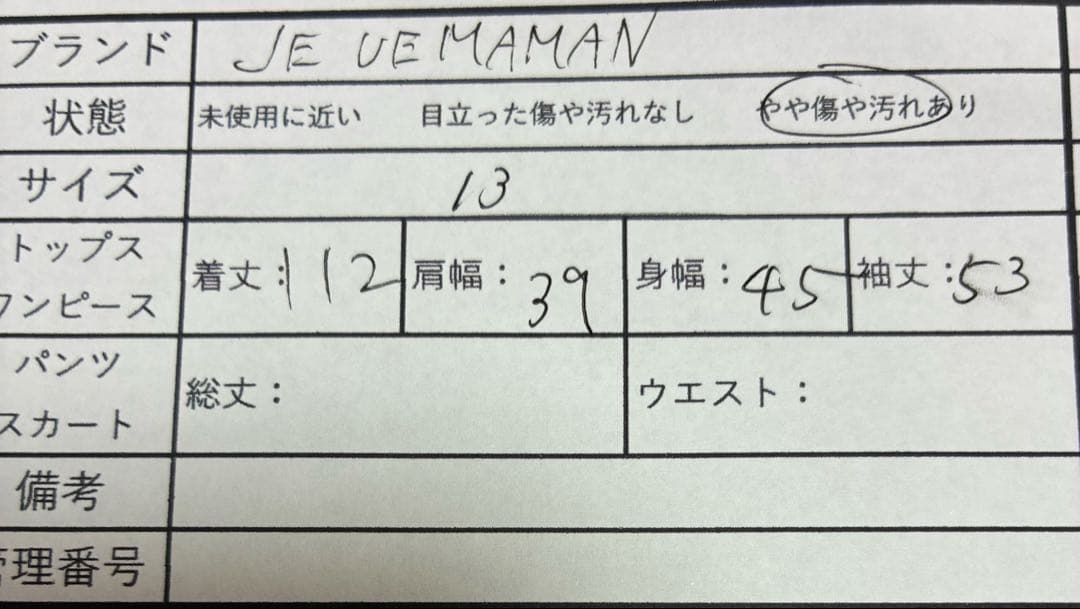 ブランド JE UE MAMAN
状態 未使用に近い 目立った傷や汚れなし やや傷や汚れあり
サイズ 13
トップス
ワンピース 着丈：112 肩幅：39 身幅：45 袖丈：53
パンツ
スカート 総丈： ウエスト：
備考
管理番号